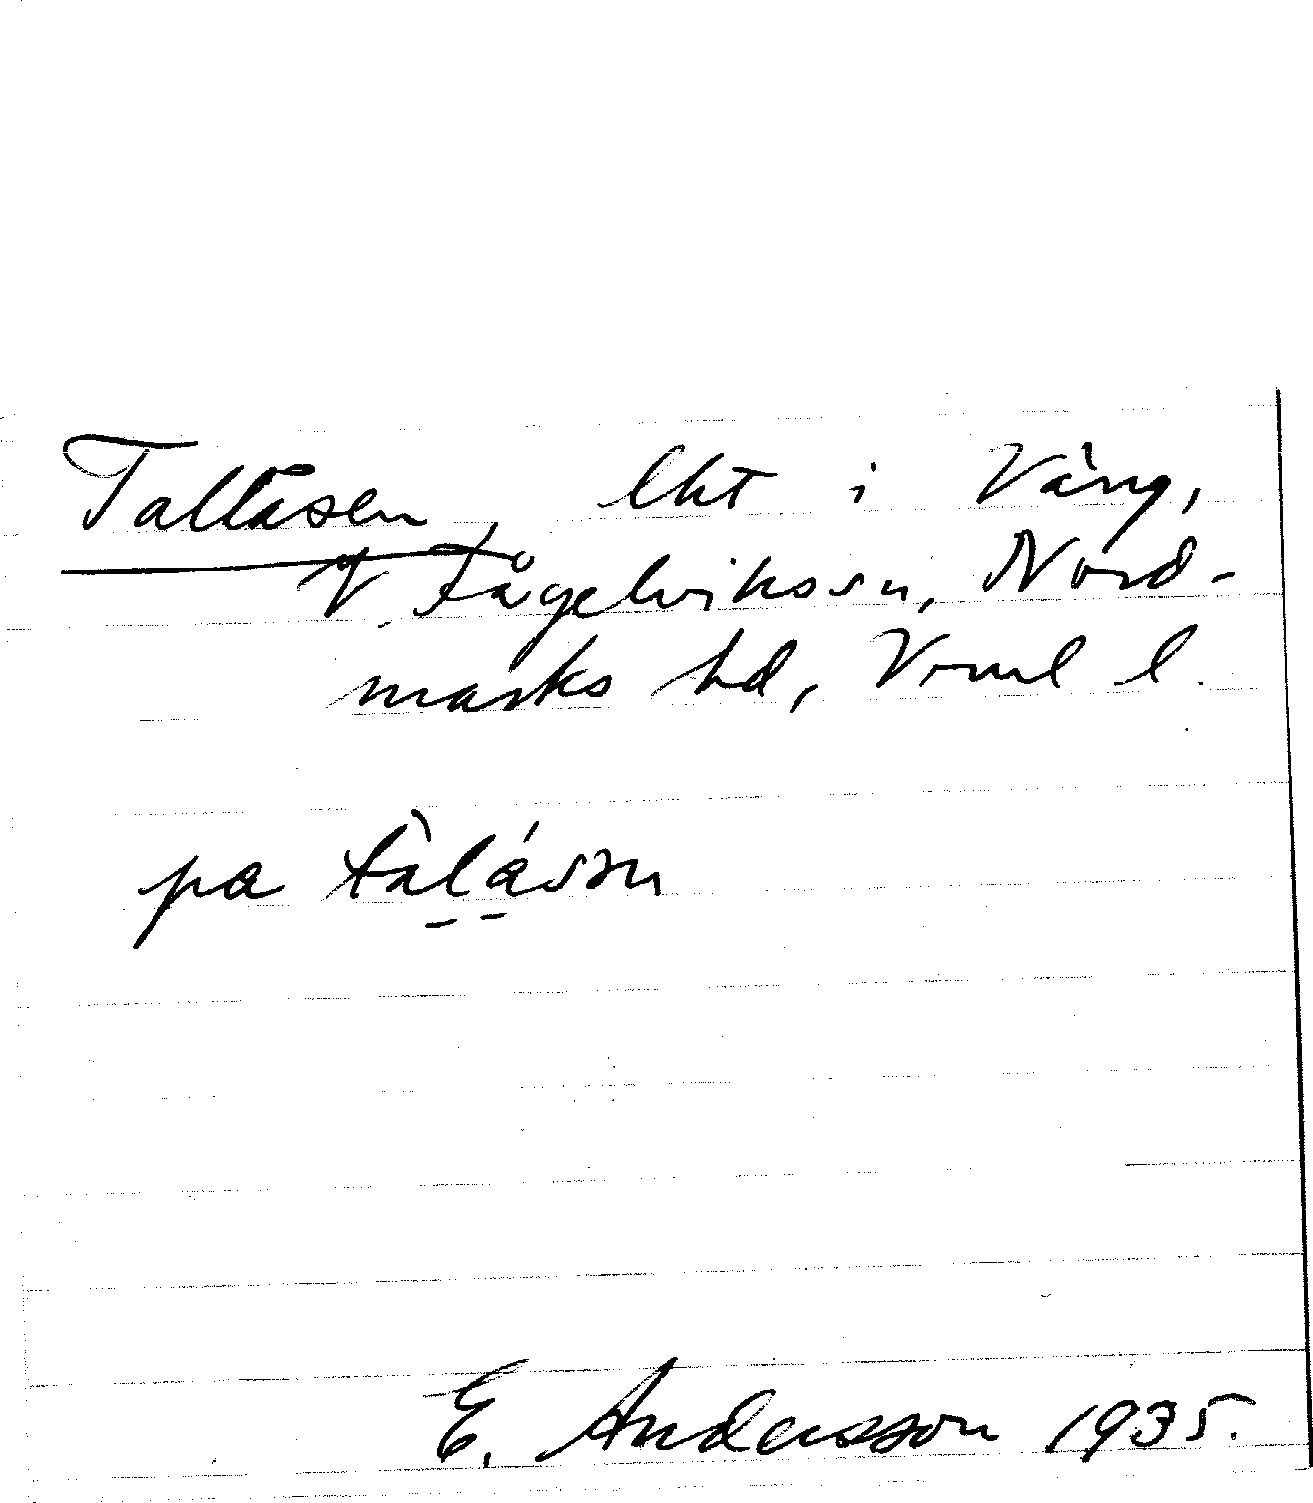 Tallåsen, lht i Väng,
V Fågelvikssn, Nord-
marks hd, Vrml l.
pa tàlásən
E. Andersson 1935.